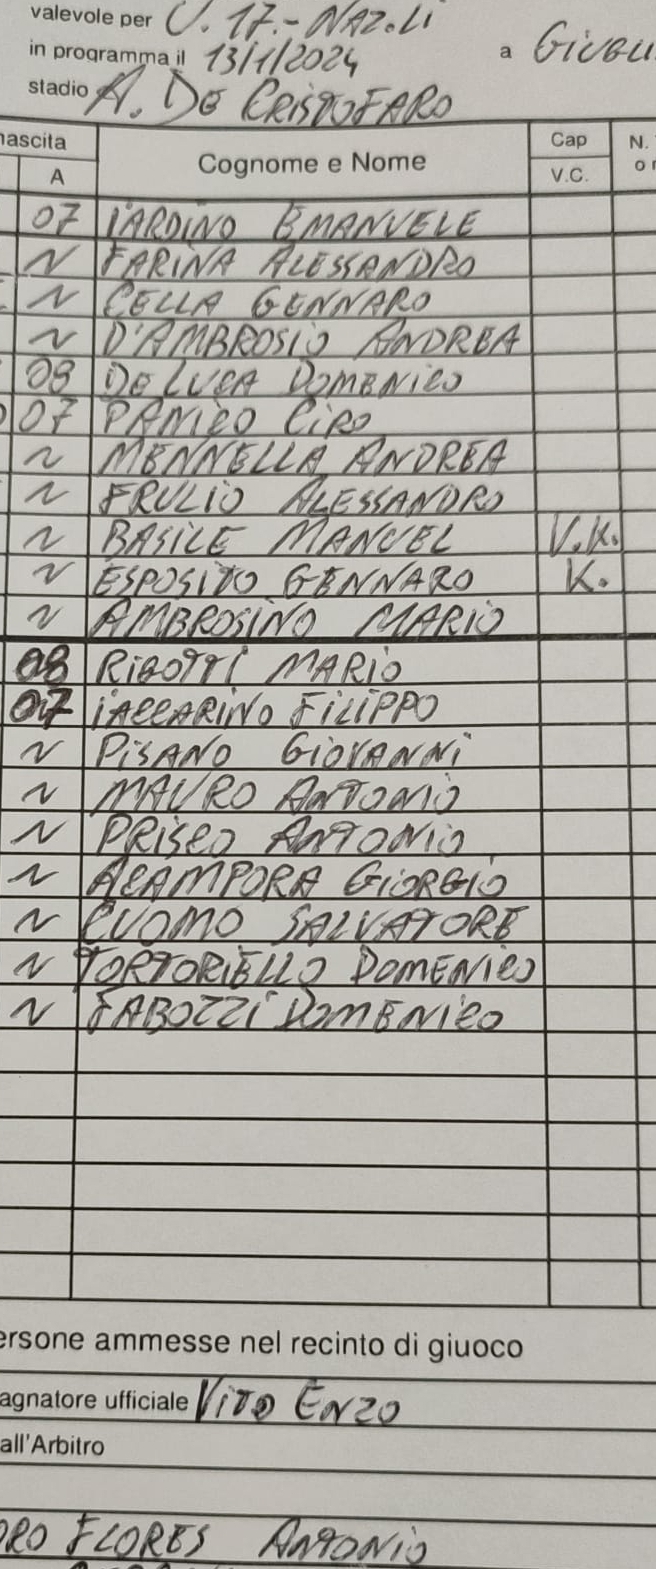 valevole per U. 17.- NAZ.LI
in programma il 13/1/2024 a GIUGLI
stadio A. DE CRISTOFARO
nascita Cognome e Nome Cap N.
A V.C. o
07 IARDINO EMANUELE
N FARINA ALESSANDRO
N CELLA GENNARO
N D'AMBROSIO ANDREA
08 DE LUCA DOMENICO
07 PANICO CIRO
N MENNELLA ANDREA
N FRULIO ALESSANDRO
N BASILE MANUEL V.K.
N ESPOSITO GENNARO K.
N AMBROSINO MARIO
08 RIBOTTI MARIO
07 IACCARINO FILIPPO
N PISANO GIOVANNI
N MAURO ANTONIO
N PRISCO ANTONIO
N ACAMPORA GIORGIO
N CUOMO SALVATORE
N TORTORIELLO DOMENICO
N FABOZZI DOMENICO
ersone ammesse nel recinto di giuoco
agnatore ufficiale VITO ENZO
all'Arbitro
ORO FLORES ANTONIO